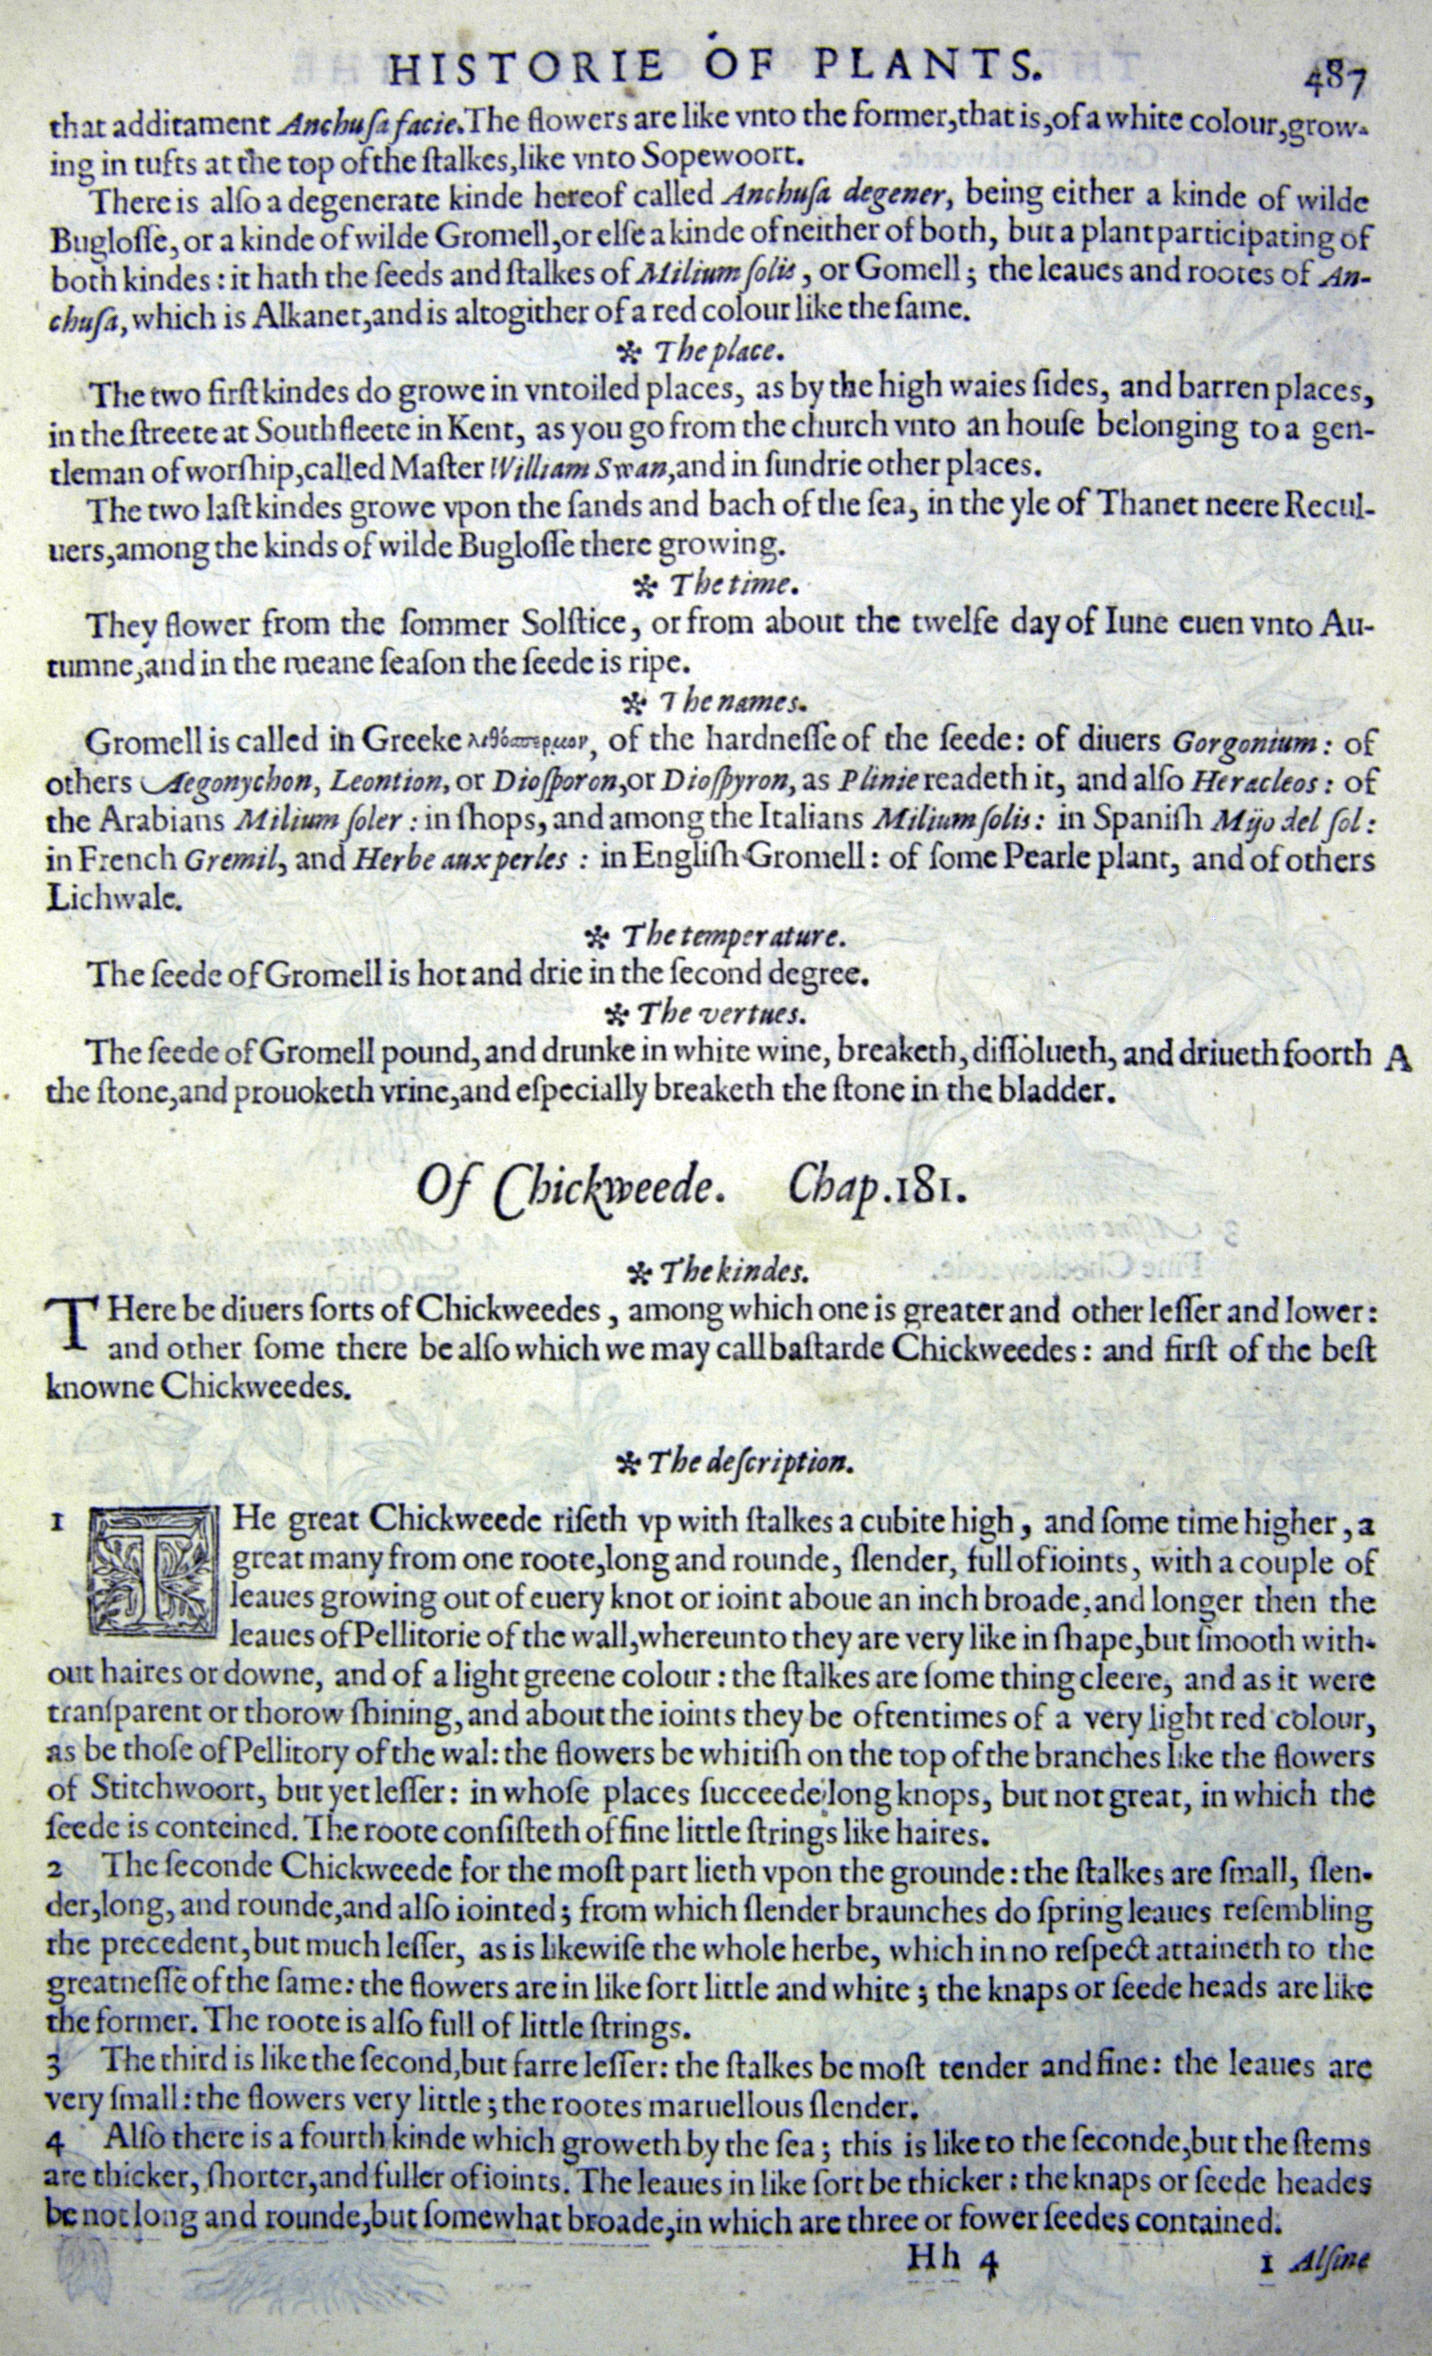 HISTORIE OF PLANTS. 487
that additament Anchuſa facie. The flowers are like vnto the former, that is, of a white colour, grow-
ing in tufts at the top of the ſtalkes, like vnto Sopewoort.
There is alſo a degenerate kinde hereof called Anchuſa degener, being either a kinde of wilde
Bugloſſe, or a kinde of wilde Gromell, or elſe a kinde of neither of both, but a plant participating of
both kindes: it hath the ſeeds and ſtalkes of Milium ſolis, or Gomell; the leaues and rootes of An-
chuſa, which is Alkanet, and is altogither of a red colour like the ſame.
✻ The place.
The two firſt kindes do growe in vntoiled places, as by the high waies ſides, and barren places,
in the ſtreete at Southfleete in Kent, as you go from the church vnto an houſe belonging to a gen-
tleman of worſhip, called Maſter William Swan, and in ſundrie other places.
The two laſt kindes growe vpon the ſands and bach of the ſea, in the yle of Thanet neere Recul-
uers, among the kinds of wilde Bugloſſe there growing.
✻ The time.
They flower from the ſommer Solſtice, or from about the twelfe day of Iune euen vnto Au-
tumne, and in the meane ſeaſon the ſeede is ripe.
✻ The names.
Gromell is called in Greeke λιθόσπερμον, of the hardneſſe of the ſeede: of diuers Gorgonium: of
others Aegonychon, Leontion, or Dioſporon, or Dioſpyron, as Plinie readeth it, and alſo Heracleos: of
the Arabians Milium ſoler: in ſhops, and among the Italians Milium ſolis: in Spaniſh Mijo del ſol:
in French Gremil, and Herbe aux perles: in Engliſh Gromell: of ſome Pearle plant, and of others
Lichwale.
✻ The temperature.
The ſeede of Gromell is hot and drie in the ſecond degree.
✻ The vertues.
The ſeede of Gromell pound, and drunke in white wine, breaketh, diſſolueth, and driueth foorth A
the ſtone, and prouoketh vrine, and eſpecially breaketh the ſtone in the bladder.
Of Chickweede. Chap. 181.
✻ The kindes.
THere be diuers ſorts of Chickweedes, among which one is greater and other leſſer and lower:
and other ſome there be alſo which we may call baſtarde Chickweedes: and firſt of the beſt
knowne Chickweedes.
✻ The deſcription.
1 THe great Chickweede riſeth vp with ſtalkes a cubite high, and ſome time higher, a
great many from one roote, long and rounde, ſlender, full of ioints, with a couple of
leaues growing out of euery knot or ioint aboue an inch broade, and longer then the
leaues of Pellitorie of the wall, whereunto they are very like in ſhape, but ſmooth with-
out haires or downe, and of a light greene colour: the ſtalkes are ſome thing cleere, and as it were
tranſparent or thorow ſhining, and about the ioints they be oftentimes of a very light red colour,
as be thoſe of Pellitory of the wal: the flowers be whitiſh on the top of the branches like the flowers
of Stitchwoort, but yet leſſer: in whoſe places ſucceede long knops, but not great, in which the
ſeede is conteined. The roote conſiſteth of fine little ſtrings like haires.
2 The ſeconde Chickweede for the moſt part lieth vpon the grounde: the ſtalkes are ſmall, ſlen-
der, long, and rounde, and alſo iointed; from which ſlender braunches do ſpring leaues reſembling
the precedent, but much leſſer, as is likewiſe the whole herbe, which in no reſpect attaineth to the
greatneſſe of the ſame: the flowers are in like ſort little and white; the knaps or ſeede heads are like
the former. The roote is alſo full of little ſtrings.
3 The third is like the ſecond, but farre leſſer: the ſtalkes be moſt tender and fine: the leaues are
very ſmall: the flowers very little; the rootes maruellous ſlender.
4 Alſo there is a fourth kinde which groweth by the ſea; this is like to the ſeconde, but the ſtems
are thicker, ſhorter, and fuller of ioints. The leaues in like ſort be thicker: the knaps or ſeede heades
be not long and rounde, but ſomewhat broade, in which are three or fower ſeedes contained.
Hh 4 1 Alſine